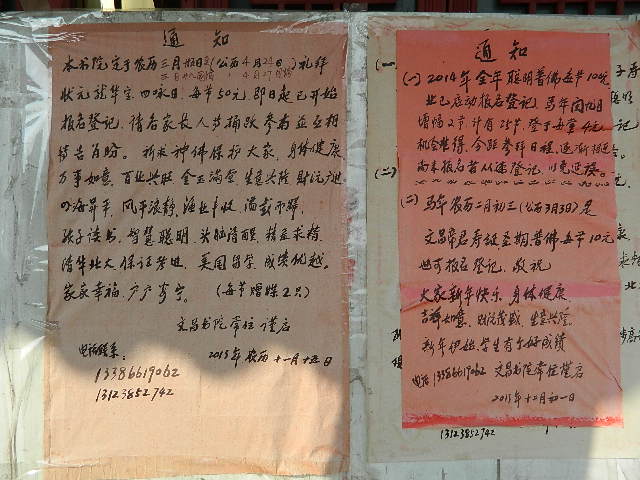 通知
本书院定于农历三月廿五日(公历4月24日)礼拜
三月廿八圆满 4月27
状元 华宝 四咏日,每节50元,即日起已开始
报名登记,请各家长人节踊跃参加并互相
转告自盼。祈求神佛保护大家,身体健康
万事如意,百业兴旺 金玉满堂,生意兴隆 财沅广进
四海昇平,风平浪静,渔业丰收,满载而归,
孩子读书,智慧聪明,头脑清醒,精益求精,
清华北大保证考进,美国留学,成绩优越。
家庭幸福,户户安宁。(每节赠蝶2只)
文昌书院常住 谨启
电话联系:
2013年农历十一月十五日
13386619062
13123852742
通知
(一)2014年全年聪明普佛每节10元
业已启动报名登记,马年闰九月
增幅2节计有25节,
机会难得,
尚未报名者从速登记,以免延误。
(二)马年农历二月初三(公历3月3日)是
文昌帝君寿诞 普佛每节10元
也可报名登记,敬祝
大家新年快乐,身体健康
吉祥如意,财沅茂盛,生意兴隆,
新年伊始学生有个好成绩
电话 13386619062 文昌书院常住谨启
2013年十二月初一日
13123852742
(一
(二)